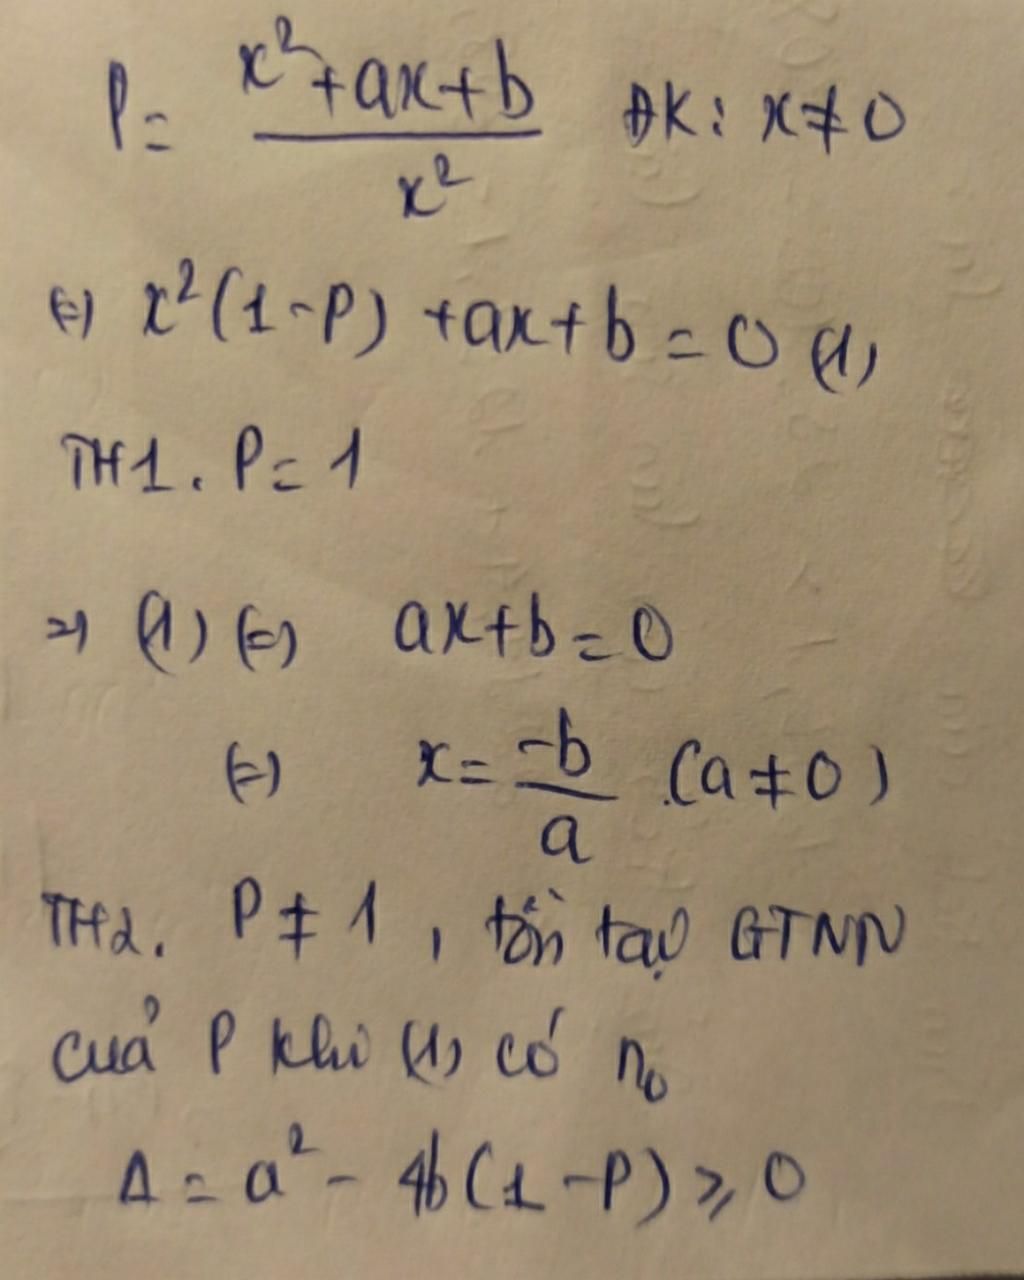 P = \frac{x^2+ax+b}{x^2} ĐK: x ≠ 0
(=) x^2(1-P) +ax+b = 0 (1)
TH1. P = 1
=) (1) (=) ax+b = 0
(=) x = \frac{-b}{a} (a ≠ 0)
TH2. P ≠ 1, tồn tại GTNN
của P khi (1) có n_0
Δ = a^2 - 4b(1-P) ≥ 0